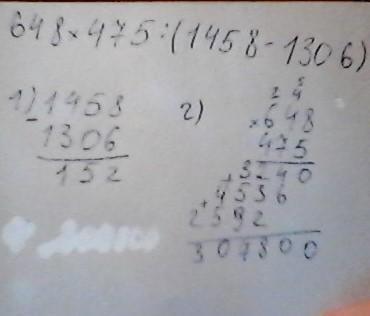 648×475:(1458-1306)
1) 1458
- 1306
152
2) 24
5
× 648
475
+ 3240
+ 4536
2592
307800